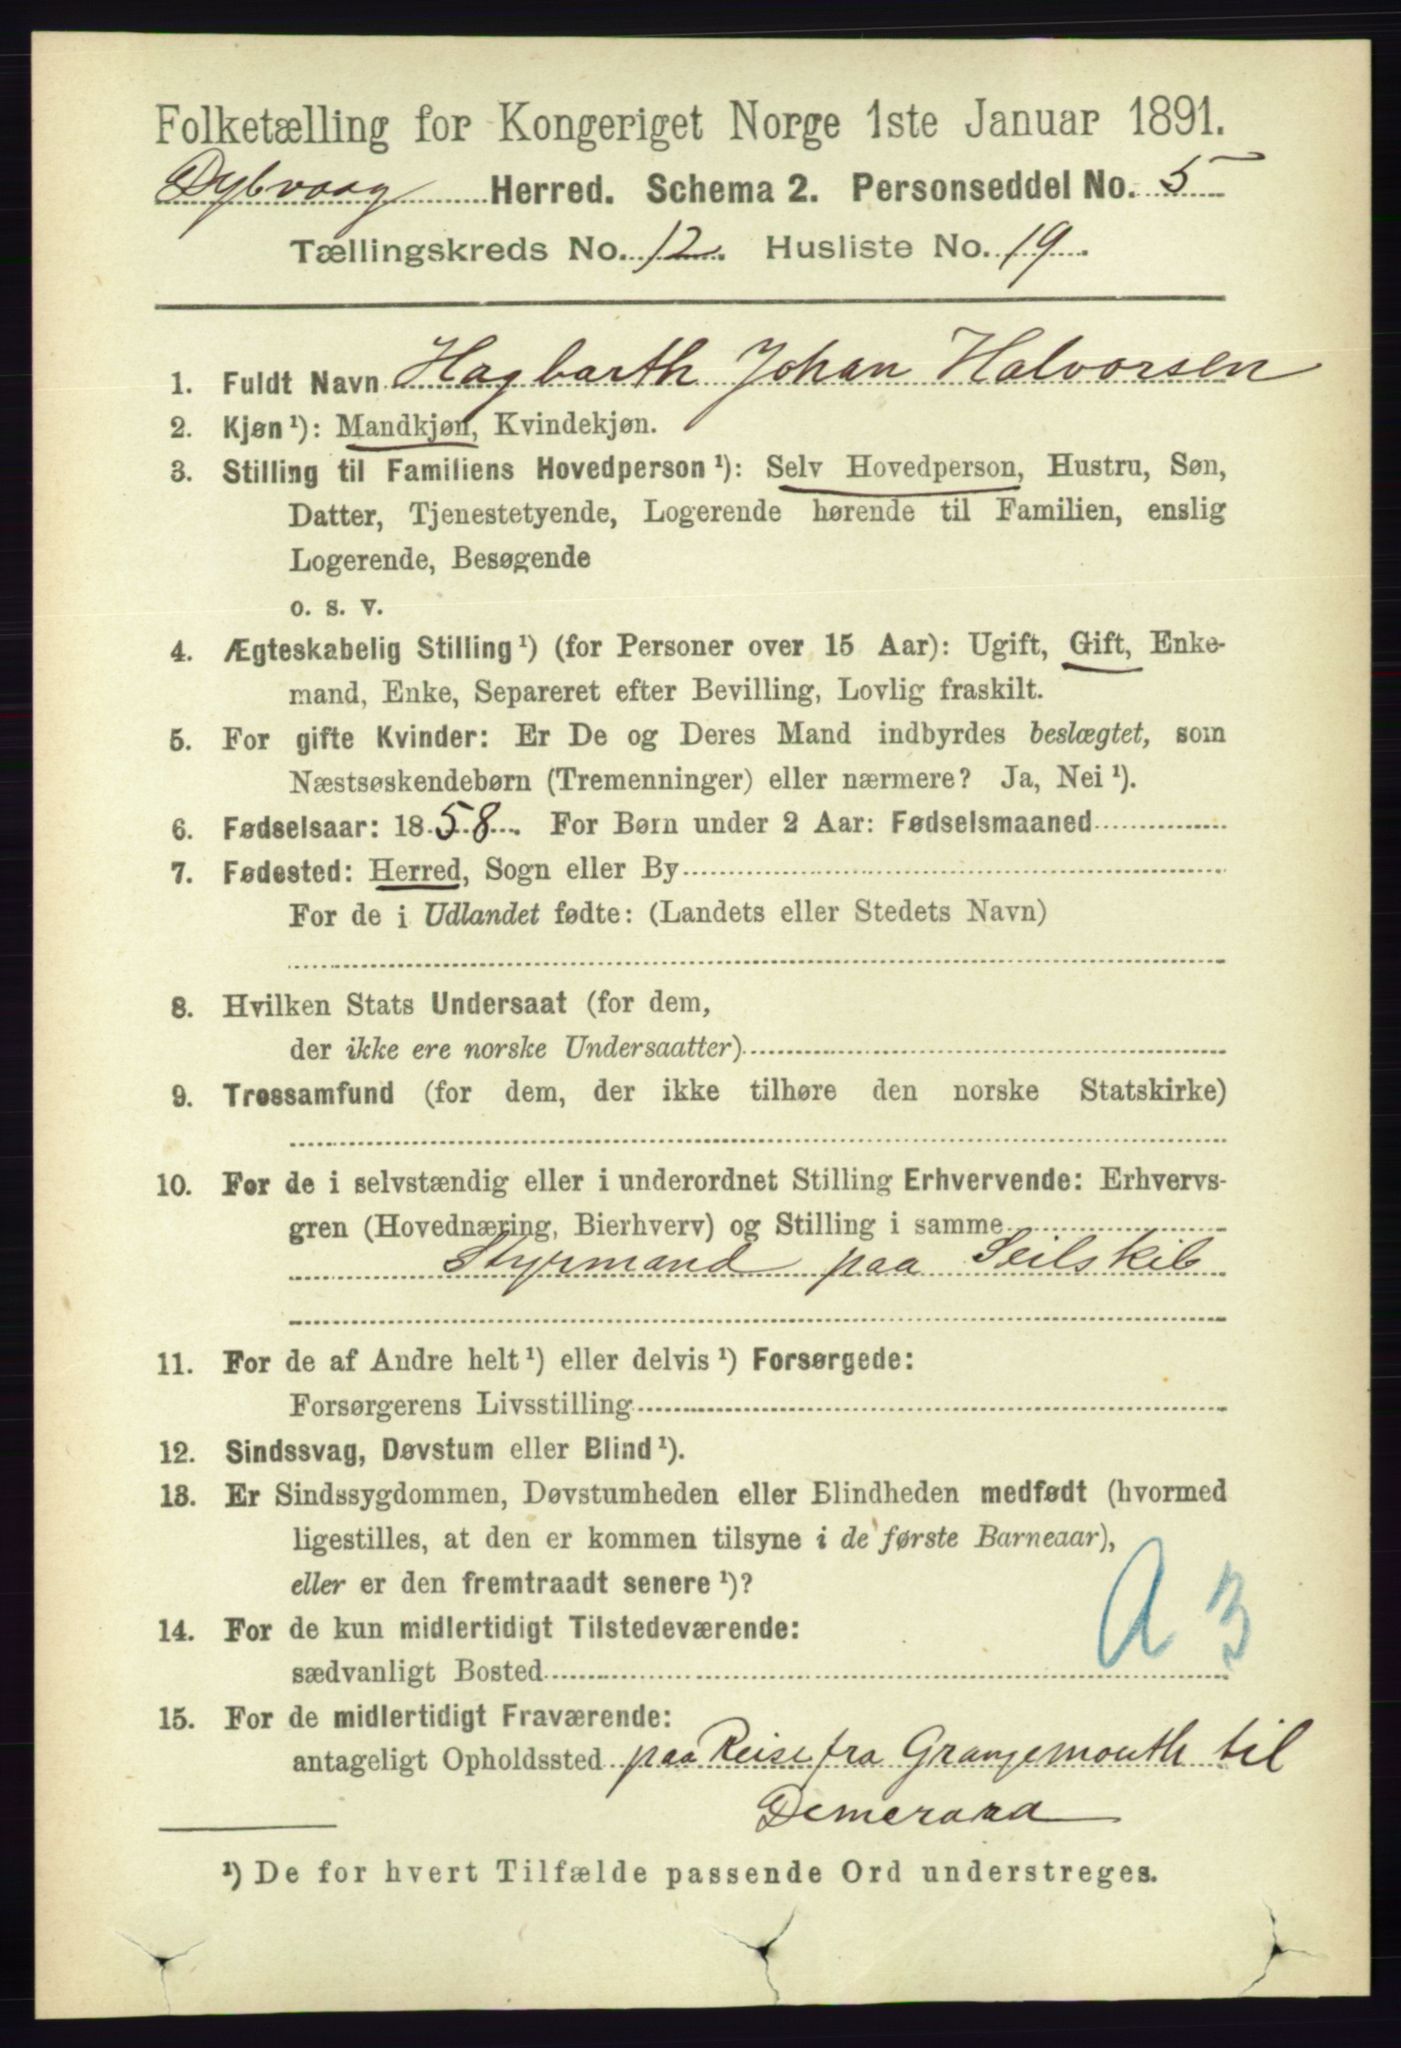 Folketælling for Kongeriget Norge 1ste Januar 1891.
Dybvaag Herred. Schema 2. Personseddel No. 5
Tællingskreds No. 12. Husliste No. 19.
1. Fuldt Navn Hagbarth Johan Halvorsen
2. Kjøn¹): Mandkjøn, Kvindekjøn.
3. Stilling til Familiens Hovedperson¹): Selv Hovedperson, Hustru, Søn,
Datter, Tjenestetyende, Logerende hørende til Familien, enslig
Logerende, Besøgende
o. s. v.
4. Ægteskabelig Stilling¹) (for Personer over 15 Aar): Ugift, Gift, Enke-
mand, Enke, Separeret efter Bevilling, Lovlig fraskilt.
5. For gifte Kvinder: Er De og Deres Mand indbyrdes beslægtet, som
Næstsøskendebørn (Tremenninger) eller nærmere? Ja, Nei¹).
6. Fødselsaar: 1858. For Børn under 2 Aar: Fødselsmaaned
7. Fødested: Herred, Sogn eller By
For de i Udlandet fødte: (Landets eller Stedets Navn)
8. Hvilken Stats Undersaat (for dem,
der ikke ere norske Undersaatter)
9. Trossamfund (for dem, der ikke tilhøre den norske Statskirke)
10. For de i selvstændig eller i underordnet Stilling Erhvervende: Erhvervs-
gren (Hovednæring, Bierhverv) og Stilling i samme
Styrmand paa Seilskib
11. For de af Andre helt¹) eller delvis¹) Forsørgede:
Forsørgerens Livsstilling
12. Sindssvag, Døvstum eller Blind¹).
13. Er Sindssygdommen, Døvstumheden eller Blindheden medfødt (hvormed
ligestilles, at den er kommen tilsyne i de første Barneaar),
eller er den fremtraadt senere¹)?
A 3
14. For de kun midlertidigt Tilstedeværende:
sædvanligt Bosted
15. For de midlertidigt Fraværende:
antageligt Opholdssted paa Reise fra Grangemouth til
Demerara
¹) De for hvert Tilfælde passende Ord understreges.